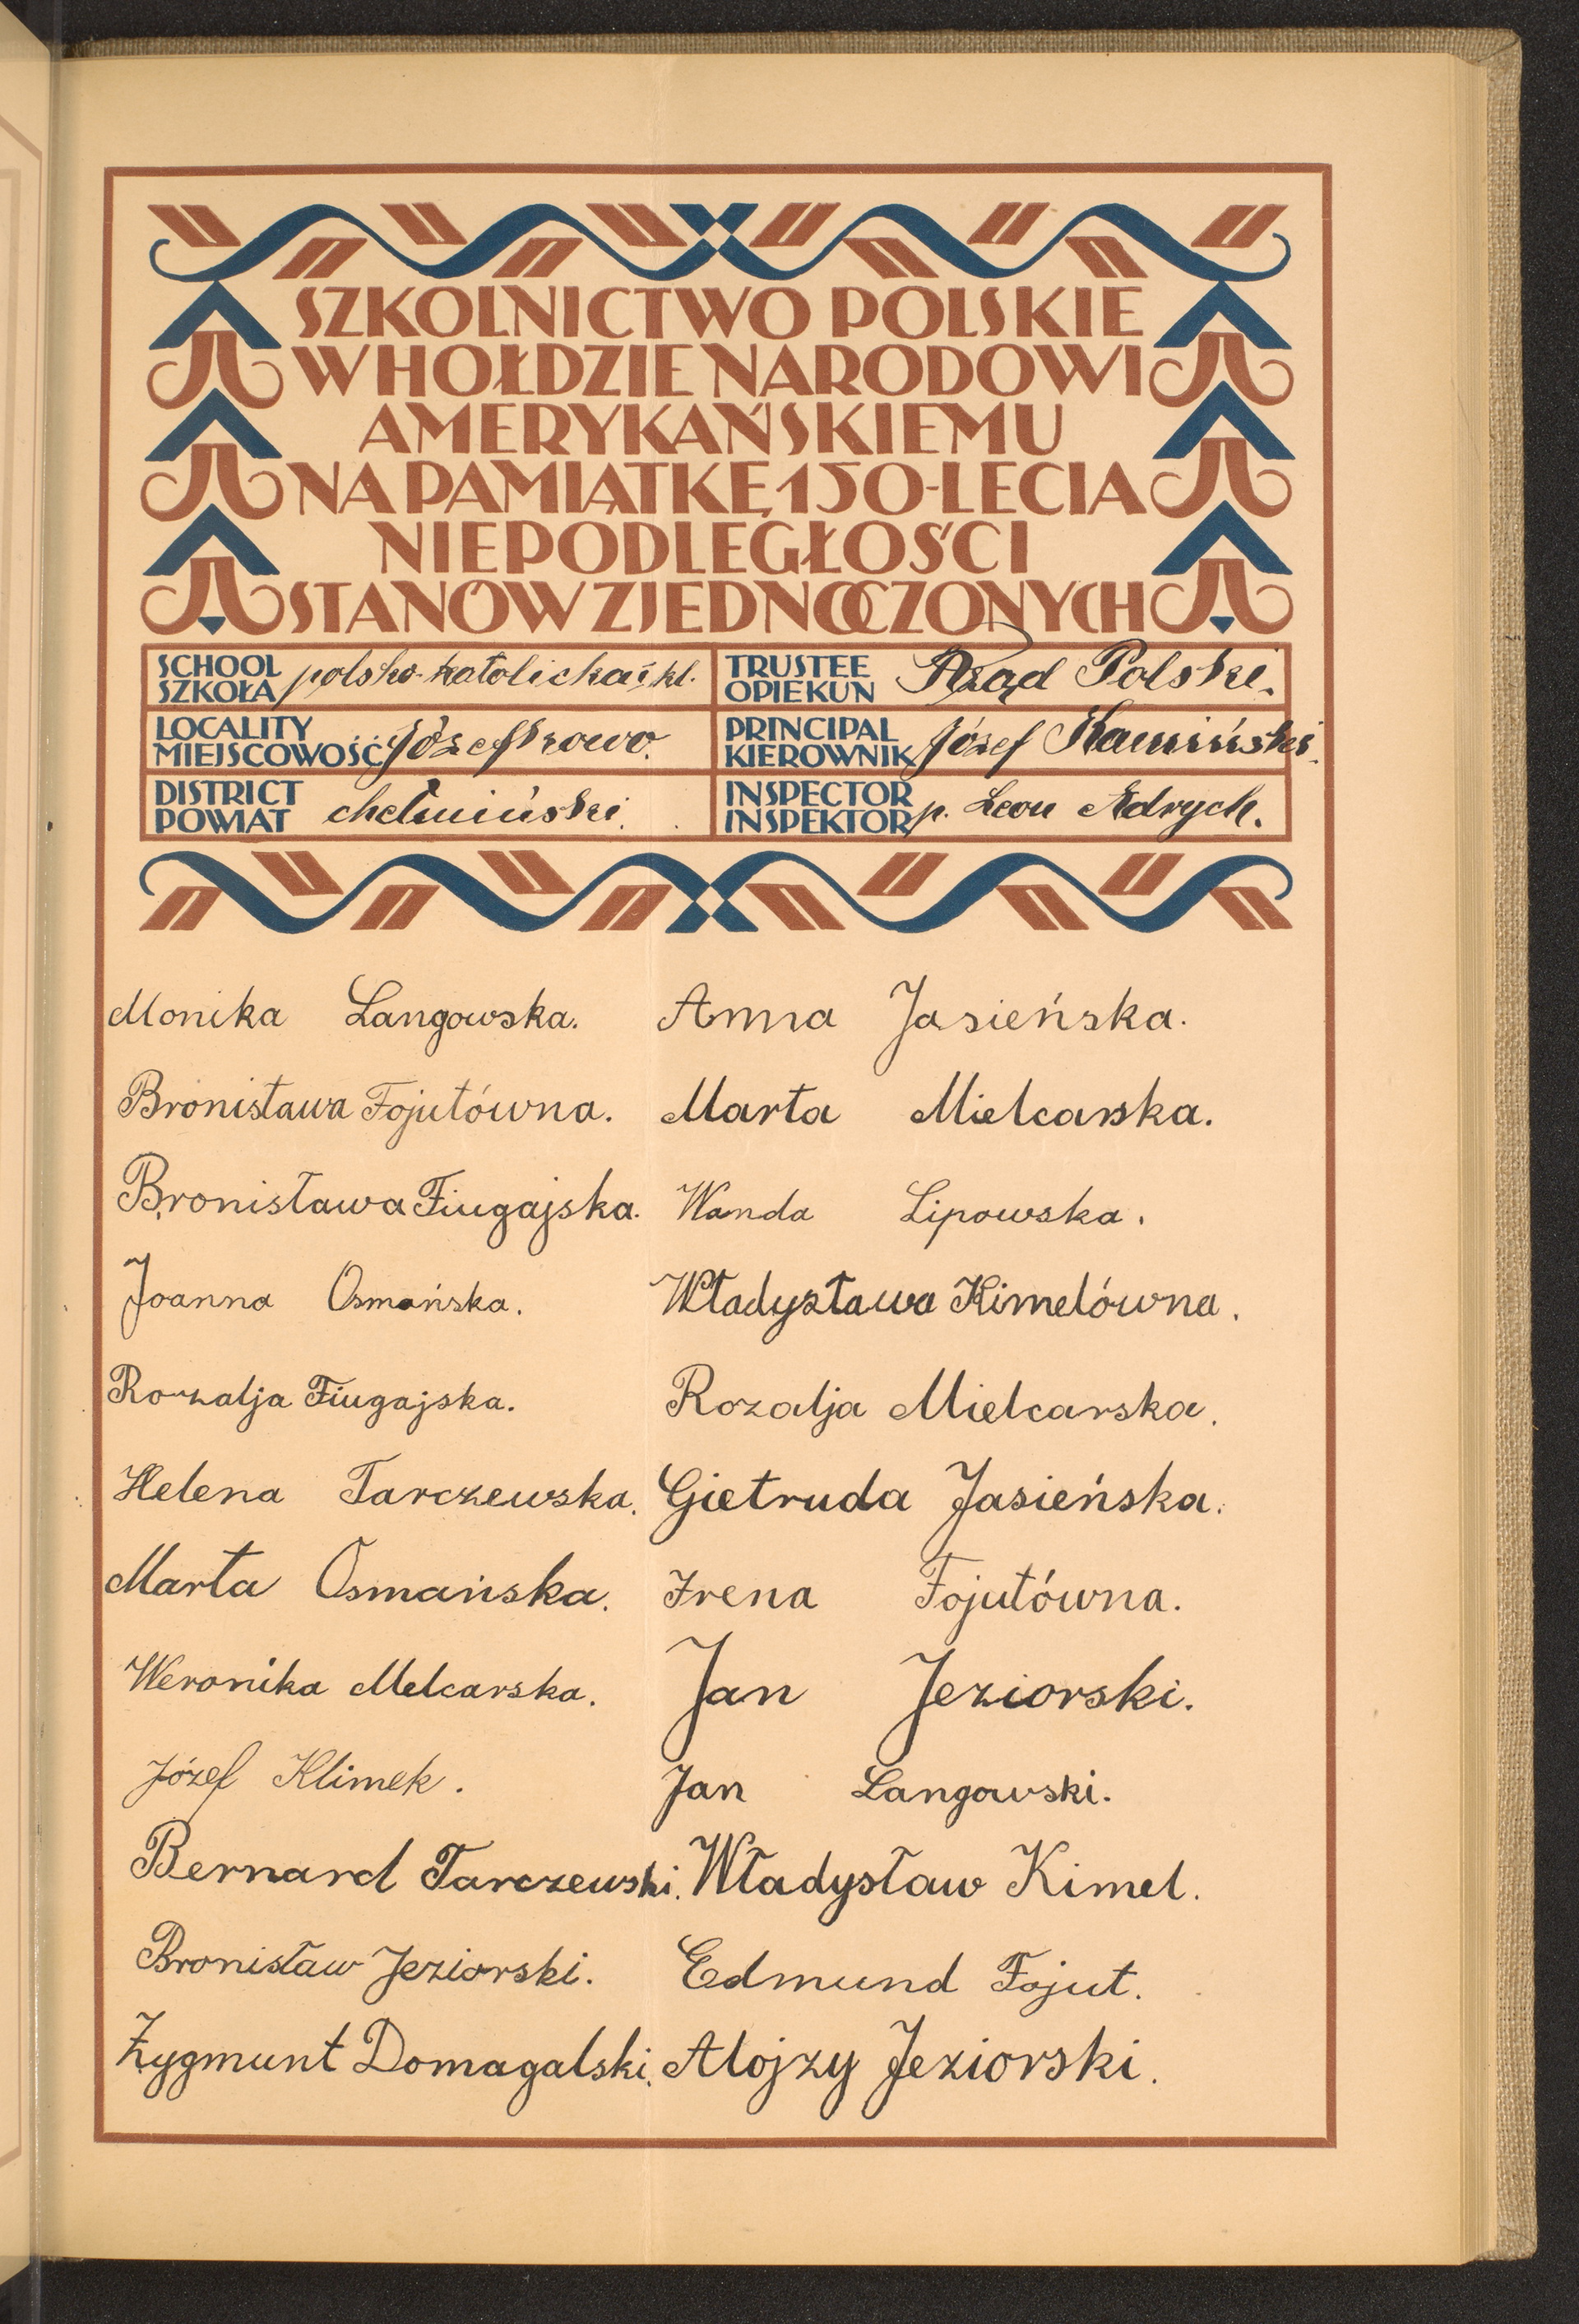 SZKOLNICTWO POLSKIE
W HOŁDZIE NARODOWI
AMERYKAŃSKIEMU
NA PAMIĄTKĘ 150-LECIA
NIEPODLEGŁOŚCI
STANÓW ZJEDNOCZONYCH
SCHOOL
SZKOŁA polsko-katolicka kl.
TRUSTEE
OPIEKUN Rząd Polski.
LOCALITY
MIEJSCOWOŚĆ Józefkowo.
PRINCIPAL
KIEROWNIK Józef Kamiński.
DISTRICT
POWIAT chełmiński.
INSPECTOR
INSPEKTOR p. Leon Adrych.
Monika Langowska. Anna Jasieńska.
Bronisława Fojutówna. Marta Mielcarska.
Bronisława Fiugajska. Wanda Lipowska.
Joanna Osmańska. Władysława Kimelówna.
Rozalja Fiugajska. Rozalja Mielcarska.
Helena Tarczewska. Gietruda Jasieńska.
Marta Osmańska. Irena Fojutówna.
Weronika Melcarska. Jan Jeziorski.
Józef Klimek. Jan Langowski.
Bernard Tarczewski. Władysław Kimel.
Bronisław Jeziorski. Edmund Fojut.
Zygmunt Domagalski. Alojzy Jeziorski.